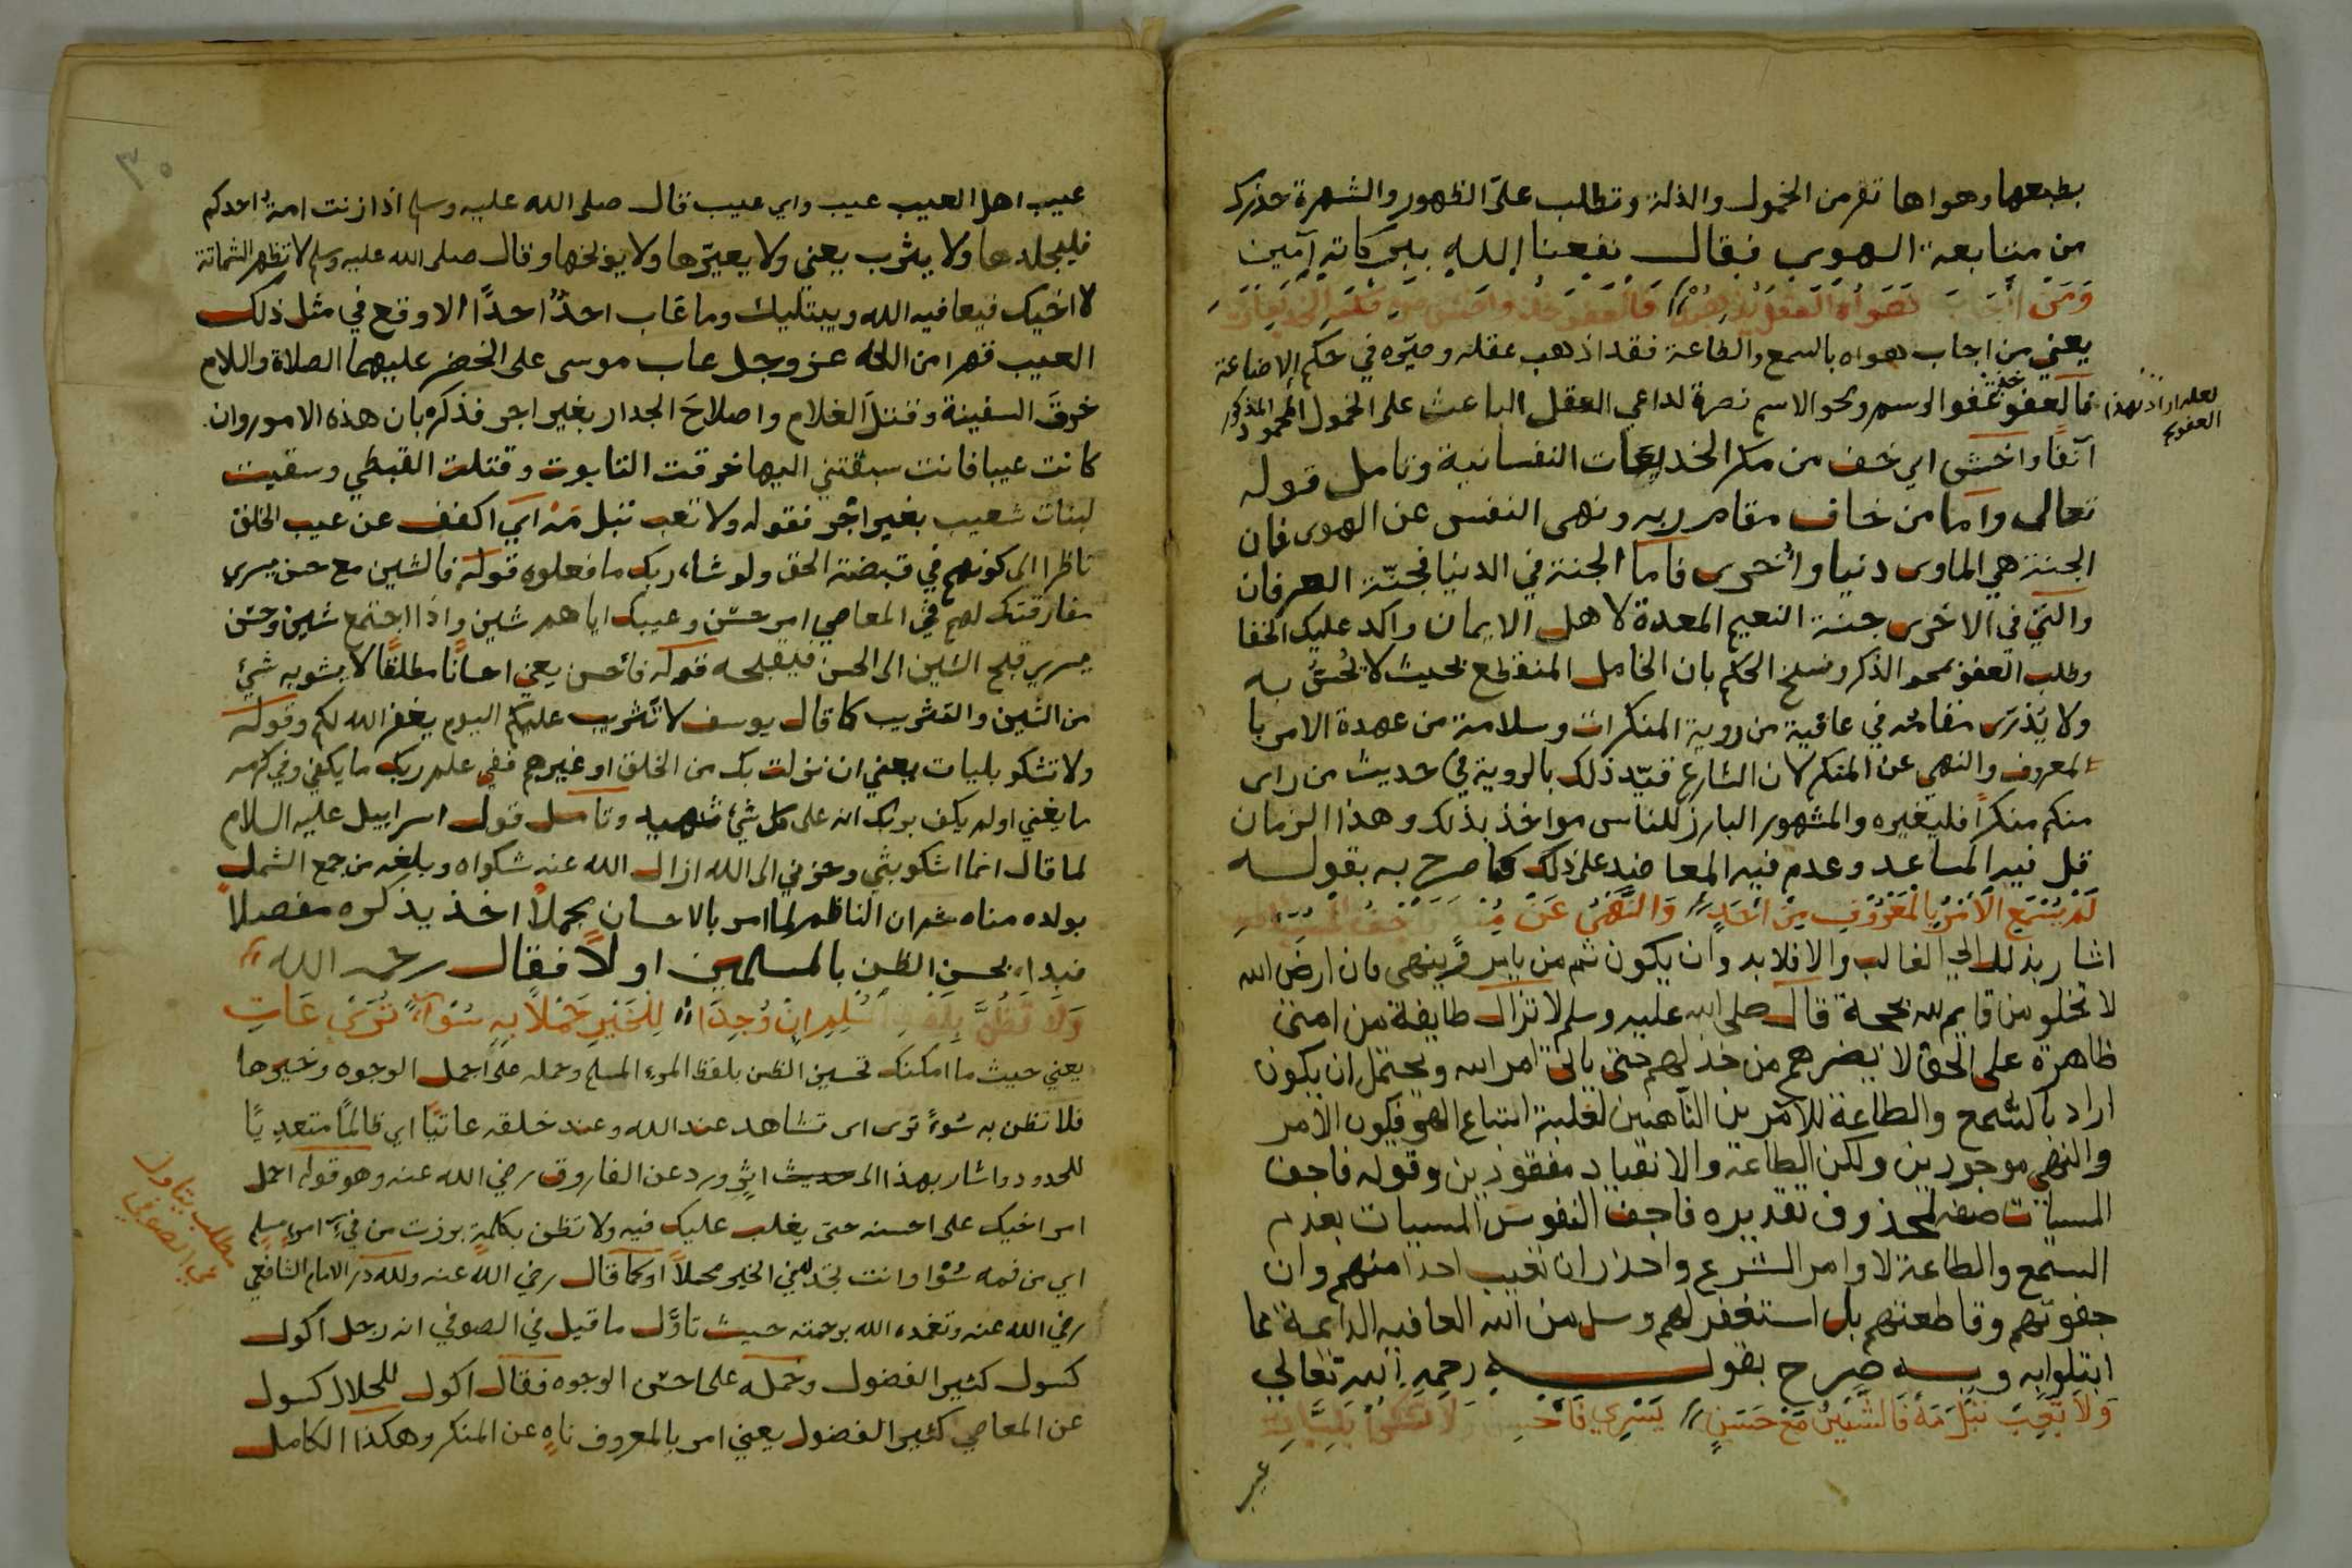 بطبعها وهواها تفر من الخمول والذلة وتطلب على الظهور والشهرة حذرك
من متابعة الهوى فقال نفعنا الله ببركاته آمين
وَمَن أجَابَ هَوَاهُ العَقلُ فَالعَفوَ خُذ واخش من مَكرِ الخديعات
يعني من اجاب هواه بالسمع والطاعة فقد اذهب عقله وصيّره في حكم الاضاعة
فالعفو عفو الرسم ومحو الاسم نصرة لداعي العقل الباعث على الخمول المحمود المذكور
لعله اراد بهذا
العفو
آنفا واخشى اي خف من مكر الخديعات النفسانية وتامل قوله
تعالى واما من خاف مقام ربه ونهى النفس عن الهوى فان
الجنة هي الماوى دنيا واخرى فاما الجنة في الدنيا فجنّة العرفان
والتي في الاخرى جنة النعيم المعدة لاهل الايمان واكد عليك الخفا
وطلب العفو بمحو الذكر ونسخ الحكم بان الخامل المنقطع بحيث لا يُحسّ به
ولا يُدرى مقامه في عافية من روية المنكرات وسلامة من عهدة الامر با
لمعروف والنهي عن المنكر لان الشارع قيّد ذلك بالروية في حديث من راى
منكم منكراً فليغيره والمشهور البارز للناس مواخذ بذلك وهذا الزمان
قل فيه المساعد وعدم فيه المعاضد على ذلك كما صرح به بقوله
لَم يُسْمَعِ الأَمْرُ بِالْمَعْرُوفِ مِنْ أَحَدٍ وَالنَّهْيُ عَنْ
اشار بذلك الى الغالب والا فلا بد وان يكون ثم من يامر وينهى فان ارض الله
لا تخلو من قايم لله بحجة قال صلى الله عليه وسلم لا تزال طايفة من امتي
ظاهرة على الحق لا يضرهم من خذلهم حتى ياتي امر الله ويحتمل ان يكون
اراد بالسمع والطاعة للآمرين الناهين لغلبة اتباع الهوى فيكون الامر
والنهي موجودين ولكن الطاعة والانقياد مفقودين وقوله فاجف
المسيات صفه لمحذوف تقديره فاجف النفوس المسيات بعدم
السمع والطاعة لاوامر الشرع واحذر ان تعيب احدا منهم وان
جفوتهم وقاطعتهم بل استغفر لهم وسل من الله العافيه الدايمة مما
ابتلوا به وبه صرح بقوله رحمه الله تعالى
وَلَا تَعِبْ تُبْلَ مَهْ فَالشَّيْنُ مَعْ حَسَنٍ يَسْرِي فَأَحْسِنْ وَلَا تَشْكُوا بَلِيَّاتِ
عيب
٣٠
عيب اهل العيب عيب واي عيب قال صلى الله عليه وسلم اذا زنت امة احدكم
فليجلدها ولا يثرب يعني ولا يعيّرها ولا يوبخها وقال صلى الله عليه وسلم لا تظهر الشماتة
لاخيك فيعافيه الله ويبتليك وما عَاب احدٌ احدًا الا وقع في مثل ذلك
العيب قهرا من الله عز وجل عاب موسى على الخضر عليهما الصلاة والسلام
خرقَ السفينة وقتلَ الغلام واصلاحَ الجدار بغير اجر فذكره بان هذه الامور وان
كانت عيبا فانت سبقتني اليها خرقت التابوت وقتلت القبطي وسقيت
لبنات شعيب بغير أجر فقوله ولا تعب تبل مَهْ اي اكفف عن عيب الخلق
ناظرا الى كونهم في قبضة الحق ولو شاء ربك ما فعلوه قوله فالشين مع حسن يسري
مفارقتك لهم في المعاصي امر حسن وعيبك اياهم شين واذا اجتمع شين وحسن
يسري قبح الشين الى الحسن فيقبحه قوله فأحسن يعني احسانًا مطلقًا لا يشوبه شئ
من الشين والتثريب كما قال يوسف لا تثريب عليكم اليوم يغفر الله لكم وقوله
ولا تشكو بليات يعني ان نزلت بك من الخلق او غيرهم ففي علم ربك ما يكفي وفي كرمه
ما يغني اولم يكف بربك انه على كل شئ شهيد وتامل قول اسراييل عليه السلام
لما قال انما اشكو بثي وحزني الى الله ازال الله عنه شكواه وبلغه من جمع الشمل
بولده مناه ثم ان الناظم لما امر بالاحسان مجملاً اخذ يذكره مفصلاً
فبدا بحسن الظن بالمسلمين اولاً فقال رحمه الله
وَلَا تَظُنَّ بِلَفْظِ المُسْلِمِ إِنْ وُجِدَا لِلْخَيْرِ حَمْلاً بِهِ سُوْآً تُرَى عَاتِ
يعني حيث ما امكنك تحسين الظن بلفظ المرء المسلم وحمله على اجمل الوجوه وخيرها
فلا تظن به سُوءً ترى اى تشاهد عند الله وعند خلقه عاتيًا اي ظالمًا متعديًا
للحدود واشار بهذا الى حديث اثر ورد عن الفاروق رضي الله عنه وهو قوله احمل
امر اخيك على احسنه حتى يغلب عليك فيه ولا تظن بكلمة برزت من فيِّ امرءٍ مسلم
اي من فمه سُوْا وانت تجد لها في الخير محملاً او كما قال رضي الله عنه ولله در الامام الشافعي
رضي الله عنه وتغمده الله برحمته حيث تاوَّل ما قيل في الصوفي انه رجل اكول
مطلب تاول
في الصوفي
كسول كثير الفضول وحمله على احسن الوجوه فقال اكول للحلال كسول
عن المعاصي كثير الفضول يعني امر بالمعروف ناهٍ عن المنكر وهكذا الكامل